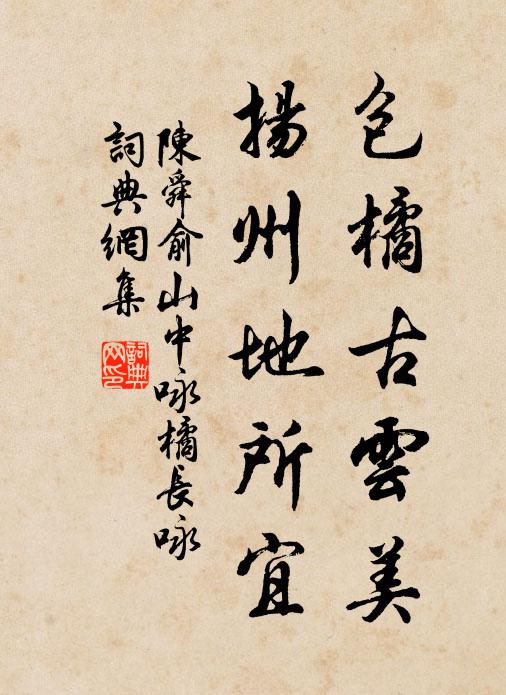 包橘古雲美
揚州地所宜
陳舜俞山中咏橘長咏
詞典網集
詞典網印